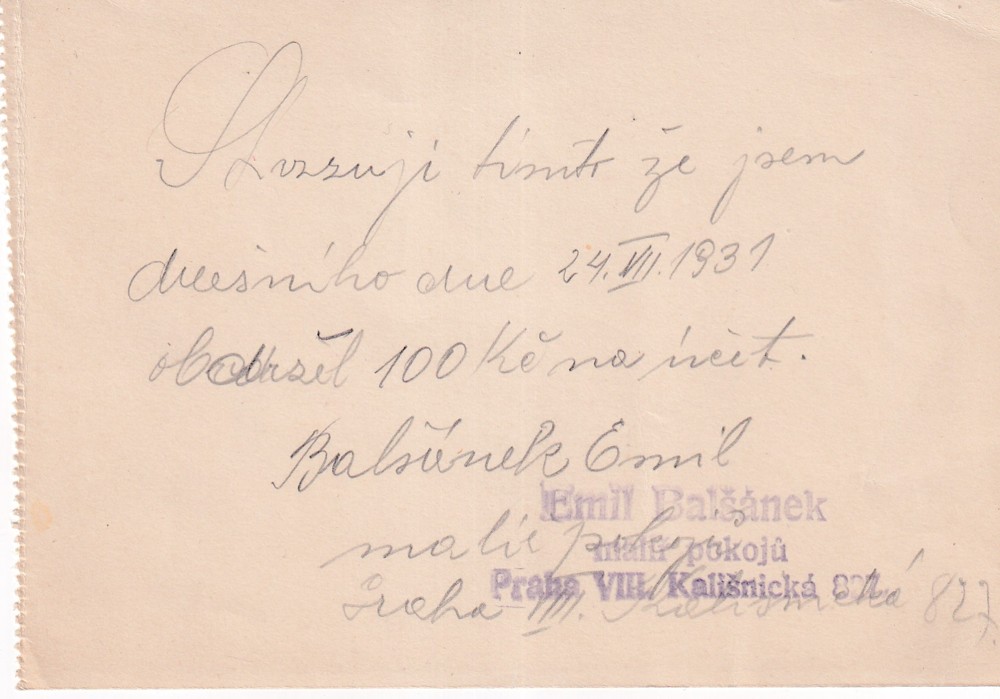 Stvrzuji tímto že jsem
dnešního dne 24.VII.1931
obdržel 100 Kč na účet.
Balšánek Emil
Emil Balšánek
malíř pokojů
malíř pokojů
Praha VIII. Kališnická 827
Praha VIII. Kališnická 827.